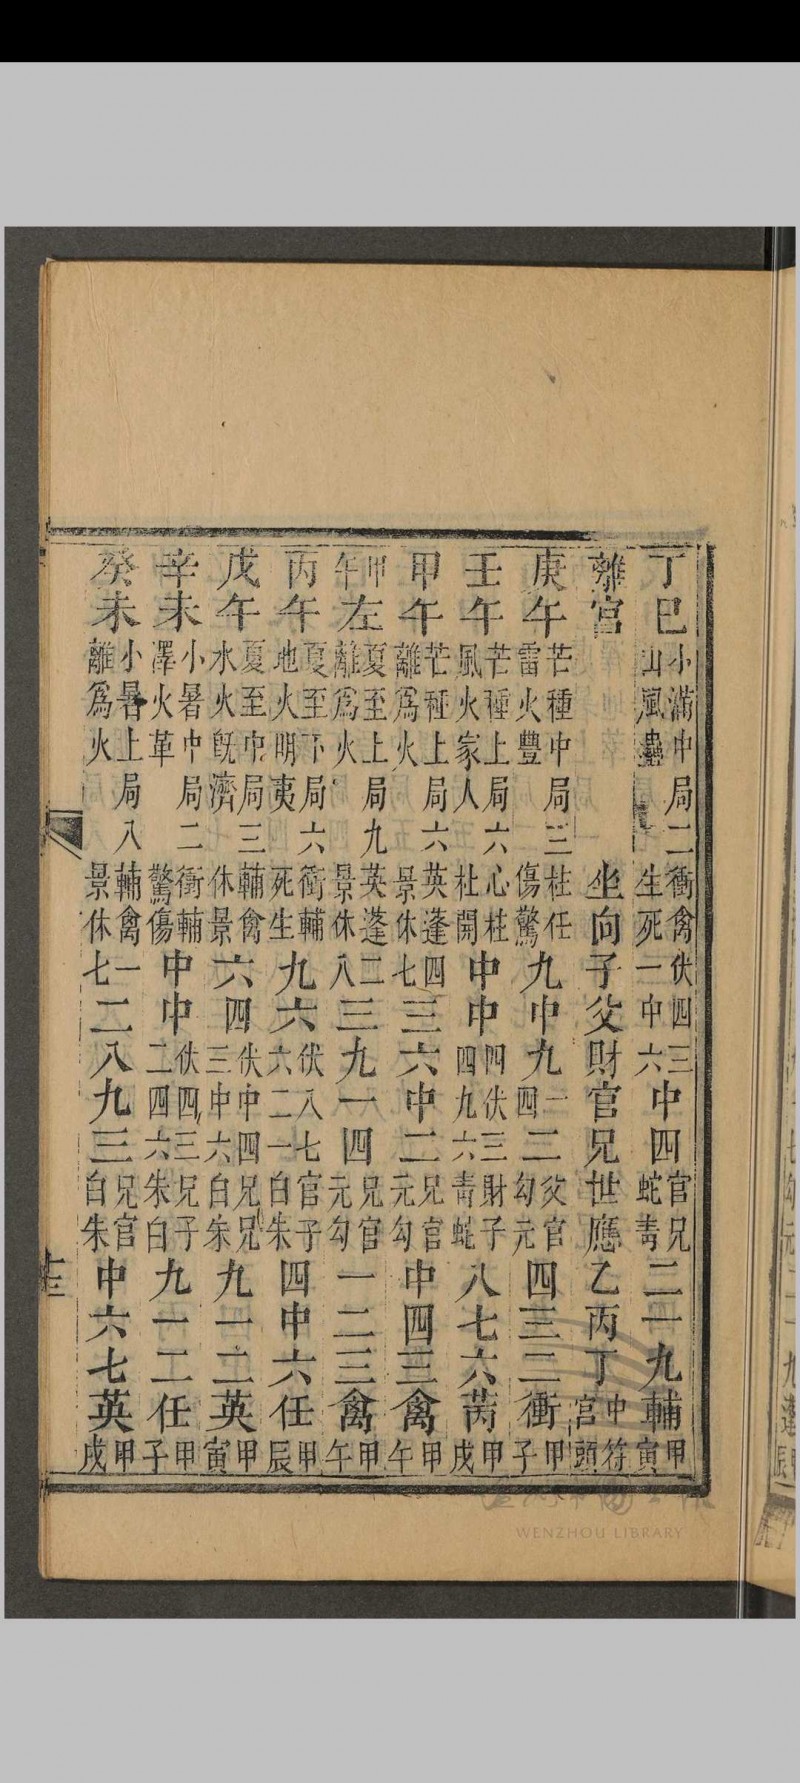 丁巳 小滿中局二 山風蠱 衝禽 生死 伏四三 一中六 中四 官兄 蛇青 二一九輔 甲寅
離宮 坐向子父財官兄世應乙丙丁 中宮 符頭
庚午 芒種中局三 雷火豐 柱任 傷驚 九中九 一二 四 父官 勾元 四三二衝 甲子
壬午 芒種上局六 風火家人 心柱 杜開 中中 四伏三 四九六 財子 青蛇 八七六芮 甲戌
甲午 芒種上局六 離爲火 英蓬 景休 四 七 三六中二 兄官 元勾 中四三禽 甲午
甲午左 夏至上局九 離爲火 英蓬 景休 二 八 三九一四 兄官 元勾 一二三禽 甲午
丙午 夏至下局六 地火明夷 衝輔 死生 九六 伏八七 六二一 官子 白朱 四中六任 甲辰
戊午 夏至中局三 水火旣濟 輔禽 休景 六四 伏中四 三中六 兄兄 白朱 九一二英 甲寅
辛未 小暑中局二 澤火革 衝輔 驚傷 中中 伏四三 二四六 兄子 朱白 九一二任 甲子
癸未 小暑上局八 離爲火 輔禽 景休 一 七 二八九三 兄官 白朱 中六七英 甲戌
十三
WENZHOU LIBRARY